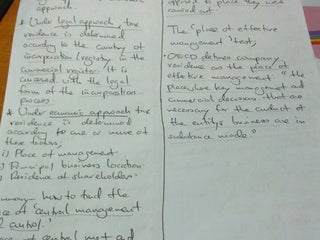 * Under legal approach, tax
residence is determined
according to the country of
incorporation/registry in the
commercial register. It is
concerned with the legal
form of the incorporation
process
* Under economic approach tax
residence is determined
according to one or more of
these factors;
i) Place of management
ii) Principal business location
residence of shareholder
how to find the
of "central management
control."
central
and
to place they were
carried out.
The "place of effective
management" test;
OECD defines company
residence as the place of
effective management. "the
place where key management and
commercial decisions that are
necessary for the conduct of
the entity's business are in
substance made"